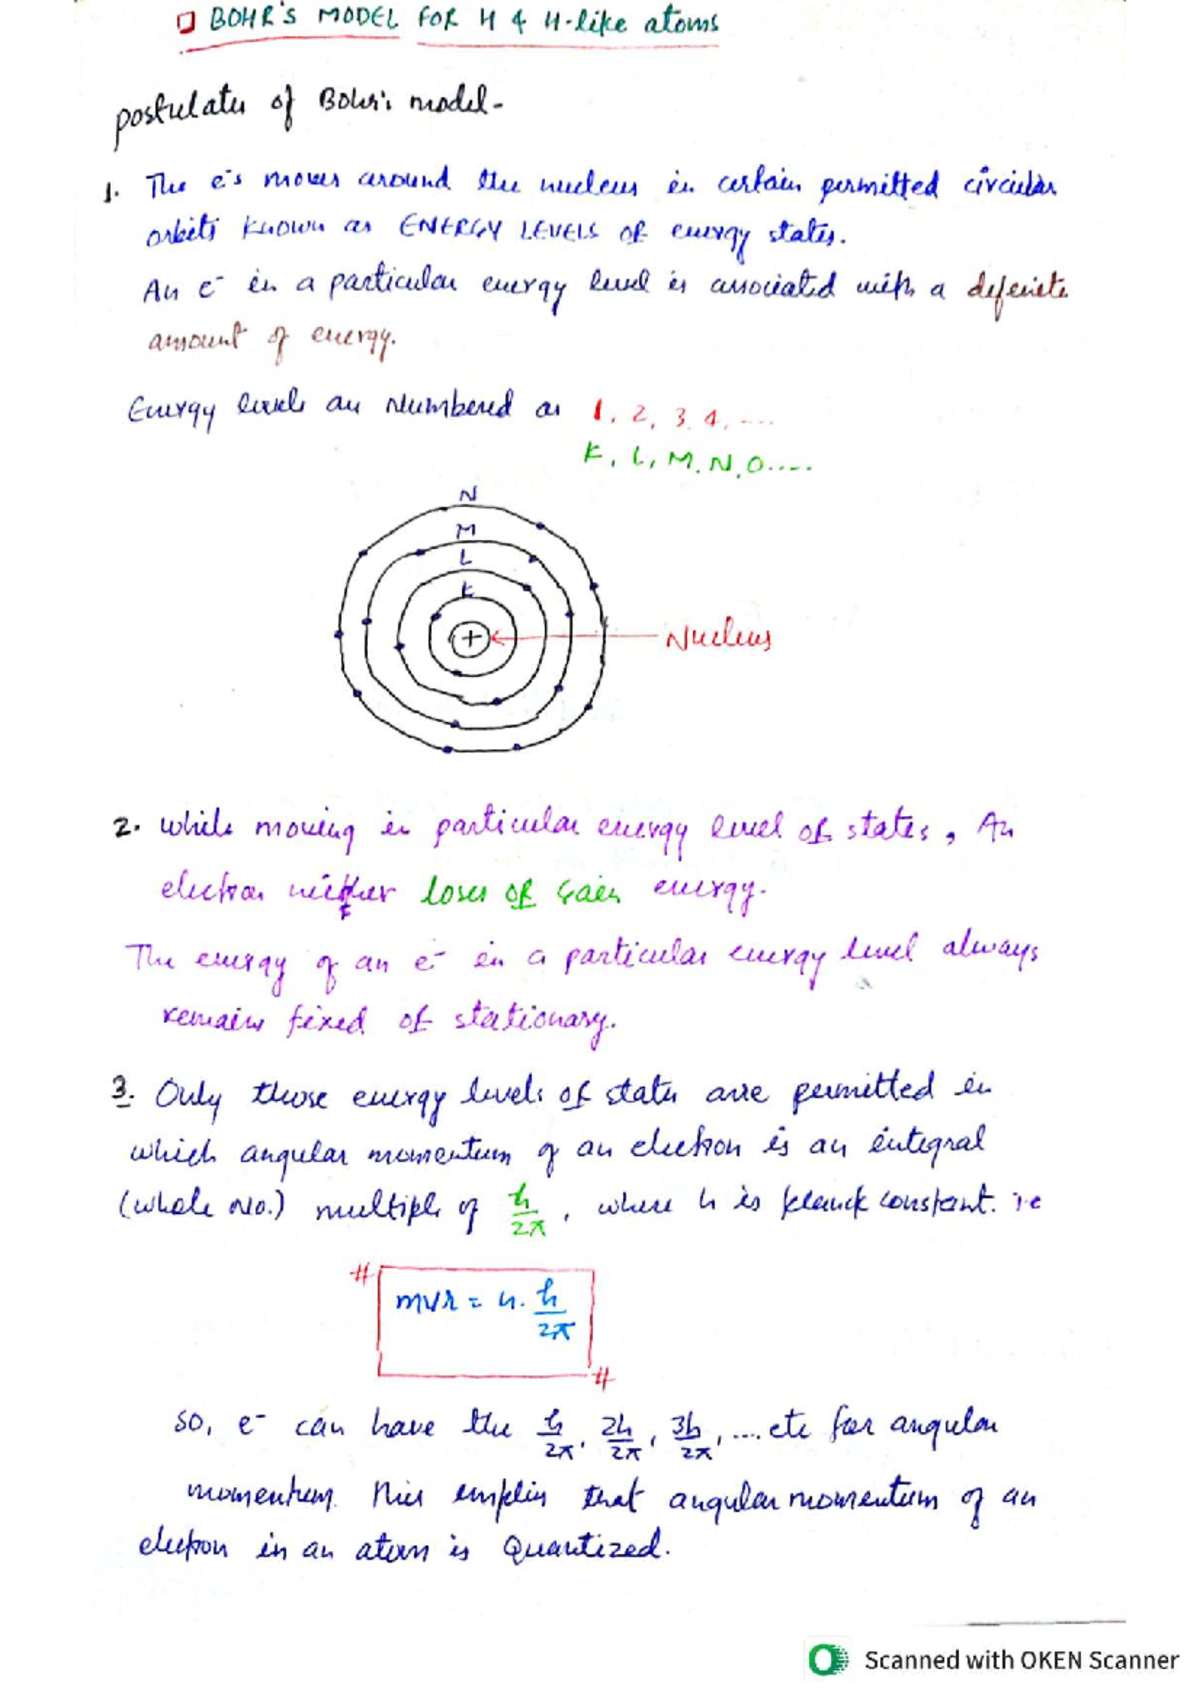 BOHR'S MODEL FOR H & H-like atoms
postulates of Bohr's model-
1. The e's moves around the nucleus in certain permitted circular
orbits known as ENERGY LEVELS OR energy states.
An e⁻ in a particular energy level is associated with a definite
amount of energy.
Energy levels are Numbered as 1, 2, 3, 4, ....
K, L, M, N, O.....
N
M
L
K
+
Nucleus
2. while moving in particular energy level of states, An
electron neither loses OR Gain energy.
The energy of an e⁻ in a particular energy level always
remains fixed OR stationary.
3. Only those energy levels OR states are permitted in
which angular momentum of an electron is an integral
(whole No.) multiple of h/2π, where h is planck constant. ie
# mvr = n. h/2π #
so, e⁻ can have the h/2π, 2h/2π, 3h/2π, .... etc for angular
momentum. This implies that angular momentum of an
electron in an atom is Quantized.
Scanned with OKEN Scanner